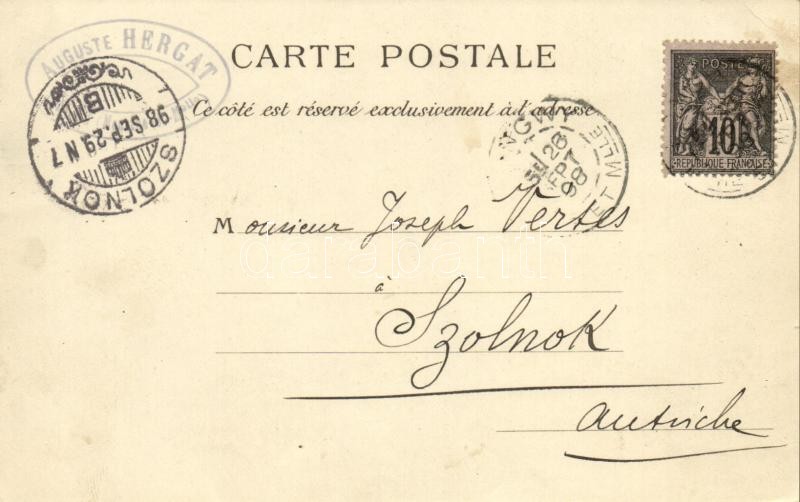 AUGUSTE HERGAT
CARTE POSTALE
Ce côté est réservé exclusivement à l'adresse
POSTE
10
RÉPUBLIQUE FRANÇAISE
SZOLNOK
98 SEP. 29 N 7
B
28
98
Monsieur Joseph Vertes
à
Szolnok
Autriche
darabanth